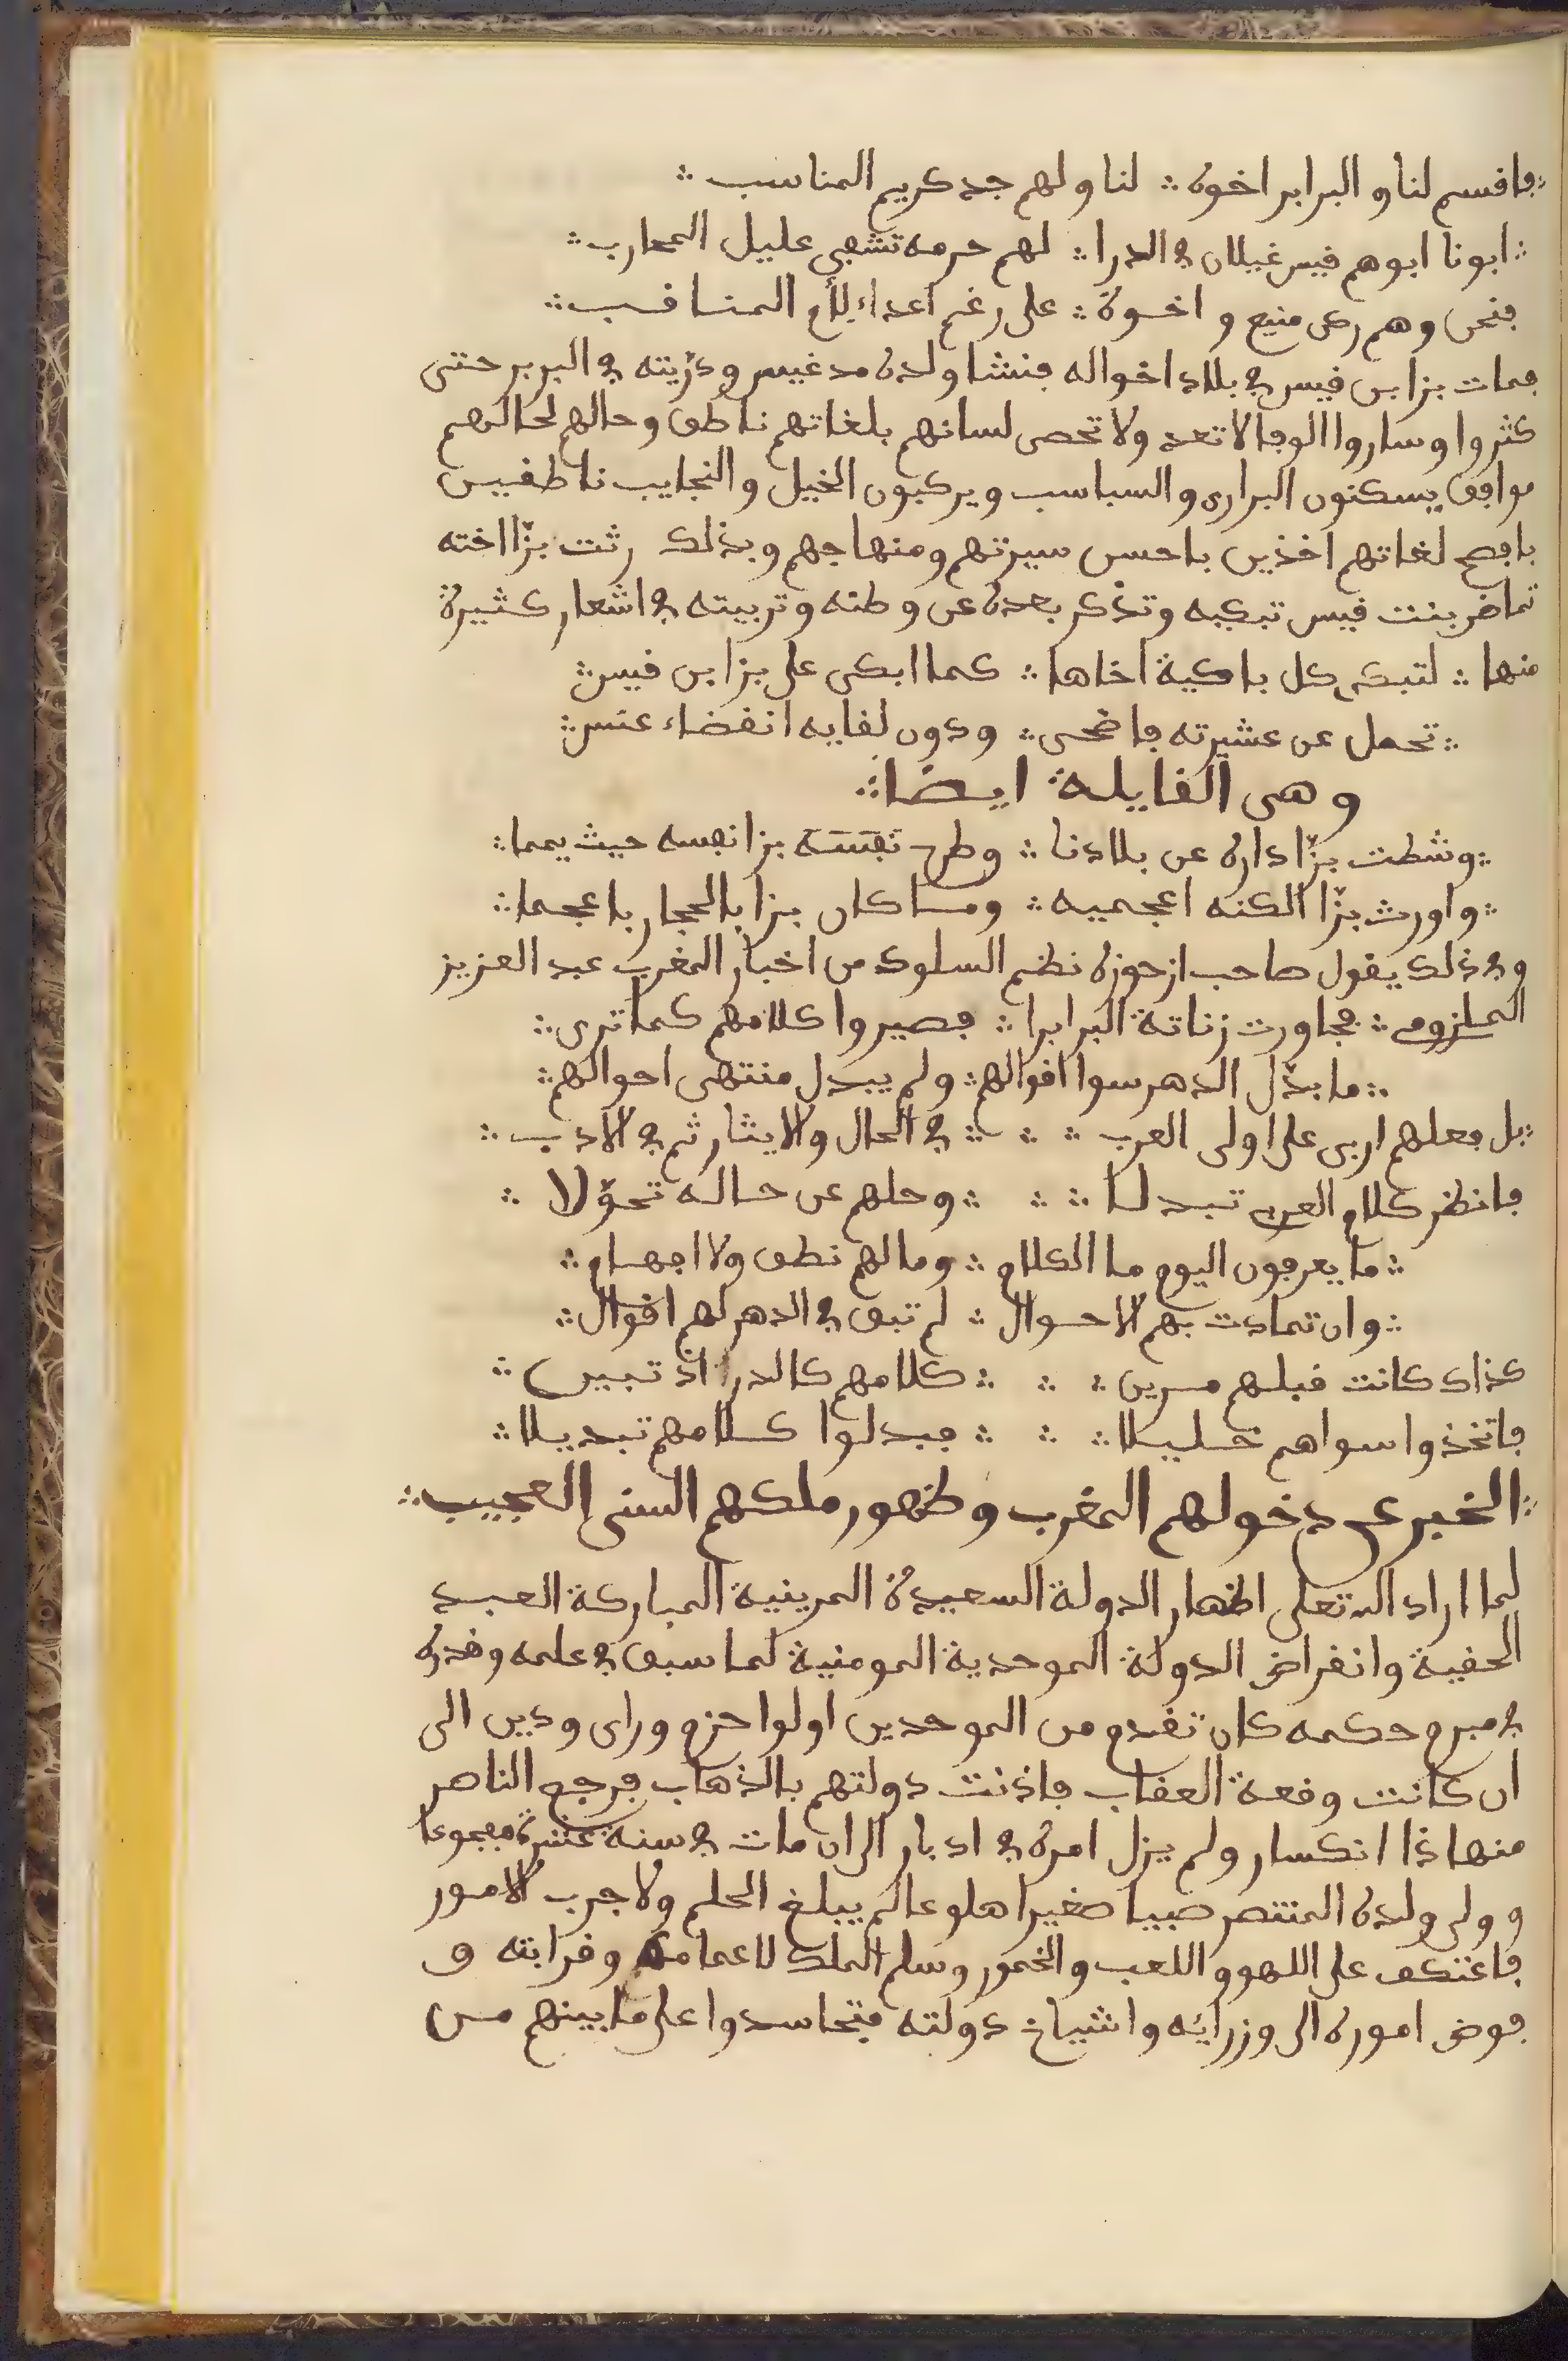 ؞ فاقسم لنا و البرابر اخوة ؞ لنا و لهم جد كريم المناسب ؞
؞ ابونا ابوهم قيس غيلان في الدرا ؞ لهم حرمه تشفي عليل المحارب ؞
فنحن و هم ركن منيع و اخوة ؞ على رغم اعداء للأم المناقب ؞
فمات بزا بن قيس في بلاد اخواله فنشا ولده مدغيس وذريته في البربر حتى
كثروا وساروا الوفا لا تعد ولا تحصى لسانهم بلغاتهم ناطق وحالهم لحالهم
موافق يسكنون البرارى والسباسب ويركبون الخيل والنجايب ناطقين
بافصح لغاتهم اخذين باحسن سيرتهم ومنهاجهم وبذلك رثت بزّا اخته
تماضر بنت قيس تبكيه وتذكر بعده عن وطنه وتربيته في اشعار كثيرة
منها ؞ لتبكى كل باكية اخاها ؞ كما ابكى على بزا بن قيس ؞
؞ تحمل عن عشيرته فاضحى ؞ ودون لقايه انقضاء عنس ؞
وهى القايلة ايضا ؞
؞ وشطت بزّا داره عن بلادنا ؞ وطرح نفسه بزا نفسه حيث يمما ؞
؞ واورث بزّا الكنه اعجميه ؞ وما كان بزا بالحجار باعجما ؞
وفي ذلك يقول صاحب ارحوزة نظم السلوك من اخبار المغرب عبد العزيز
الملزومي ؞ فجاورت زناتة البرابرا ؞ فصيروا كلامهم كما ترى ؞
؞ ما بدّل الدهر سوا اقوالهم ؞ ولم يبدل منتهى احوالهم ؞
؞ بل فعلهم اربى على اولى العرب ؞ ؞ ؞ في الحال والايثار ثم في الادب ؞
فانظر كلام العرب تبدلا ؞ ؞ ؞ وحلهم عن حاله تحوّلا ؞
؞ ما يعرفون اليوم ما الكلام ؞ وما لهم نطق ولا افهام ؞
؞ وان تمادت بهم الاحوال ؞ لم تبق في الدهر لهم اقوال ؞
كذاك كانت قبلهم مرين ؞ ؞ ؞ كلامهم كالدر اذ تبين ؞
فاتخذوا سواهم خليلا ؞ ؞ ؞ فبدلوا كلامهم تبديلا ؞
؞ الخبر عن دخولهم المغرب وظهور ملكهم السنى العجيب ؞
لما اراد الله تعلى اظهار الدولة السعيدة المرينية المباركة العبد
الحفية وانقراض الدولة الموحدية المومنية لما سبق في علمه وقدره
في مبرم حكمه كان تقدم من الموحدين اولوا حزم وراى ودين الى
ان كانت وقعة العقاب فاذنت دولتهم بالذهاب فرجع الناصر
منها ذا انكسار ولم يزل امره في ادبار الى ان مات في سنة عشرة مفجوعا
وولى ولده المنتصر صبيا صغيرا هلوعا لم يبلغ الحلم ولا جرب الامور
فاعتكف على اللهو واللعب والخمور وسلم الملك لاعمامه وقرابته و
فوض اموره الى وزرائه واشياخ دولته فتحاسدوا على ما بينهم من